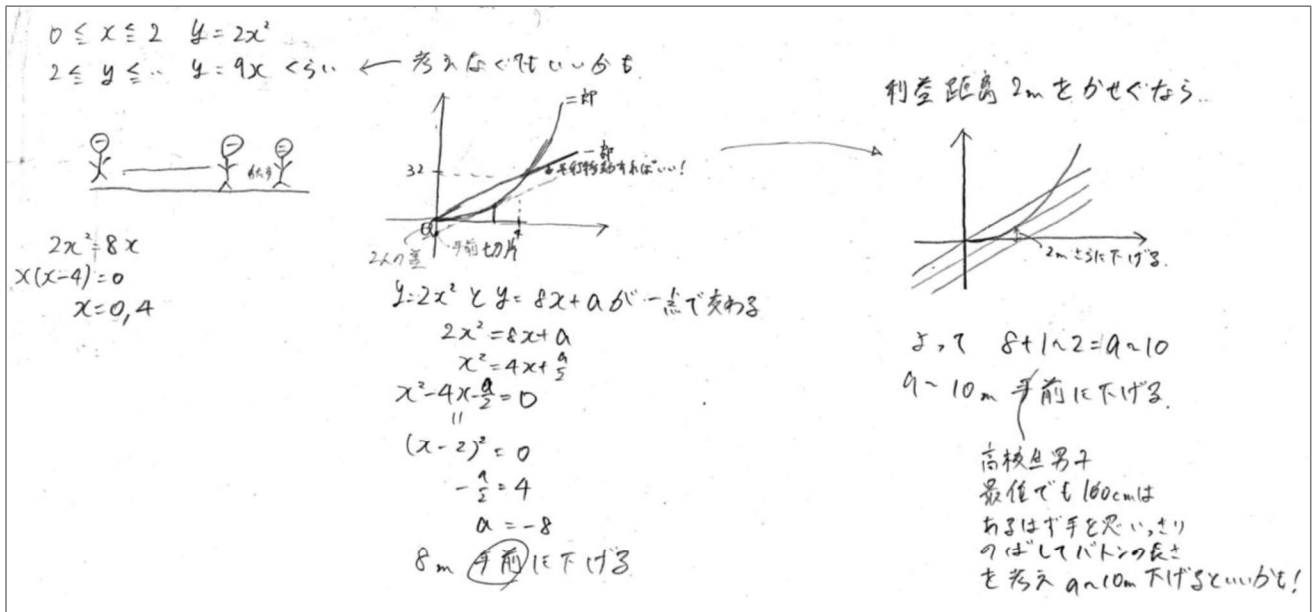 0 ≦ x ≦ 2  y = 2x²
2 ≦ y ≦ ‥  y = 9x くらい ← 考えなくてもいいかも
2x² = 8x
x(x-4) = 0
x = 0, 4
二郎
一郎
平行移動すればいい!
32
0
4
2人の差
手前
切片
y = 2x² と y = 8x + a が 一点で交わる
2x² = 8x + a
x² = 4x + a/2
x² - 4x - a/2 = 0
||
(x - 2)² = 0
- a/2 = 4
a = -8
8m 手前に下げる
利益距離 2m をかせぐなら‥
2m さらに下げる.
よって 8+1~2 = 9~10
9~10m 手前に下げる.
高校生男子
最低でも 160cmは
あるはず手を思いっきり
のばしてバトンの長さ
を考え 9~10m 下げるといいかも!